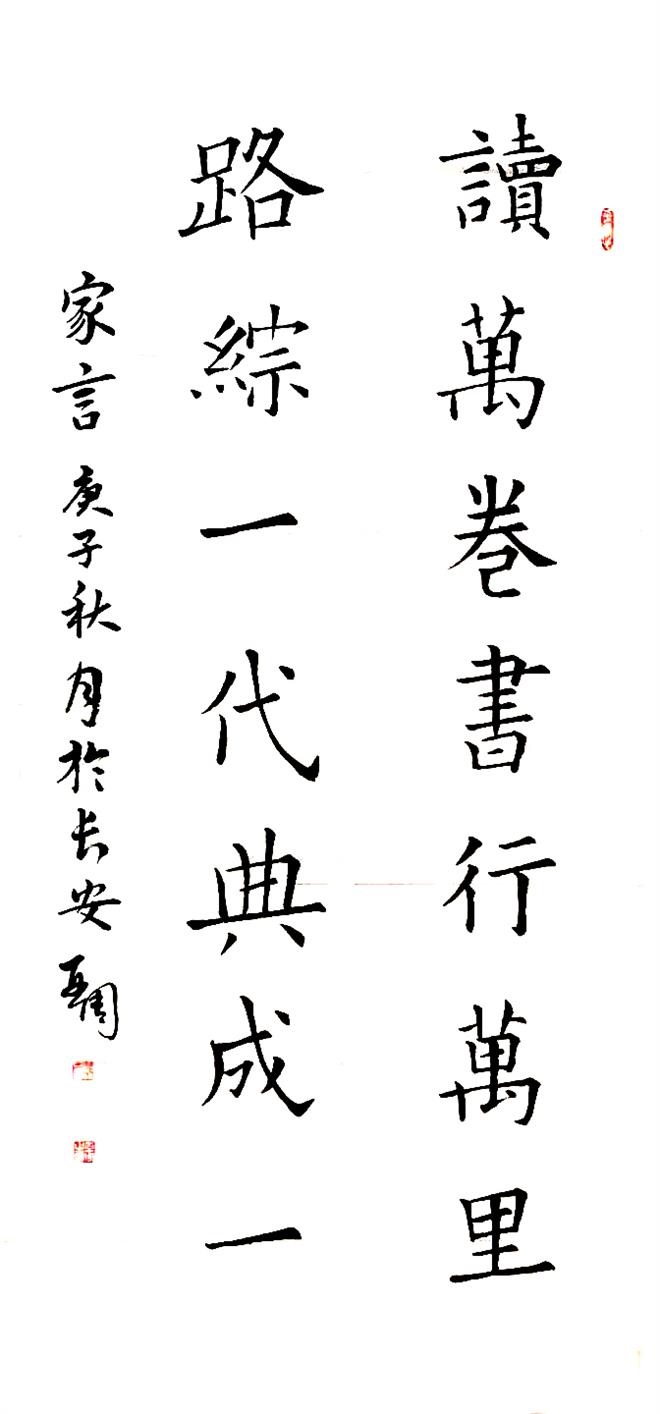 讀萬卷書行萬里
路綜一代典成一
家言 庚子秋月於長安